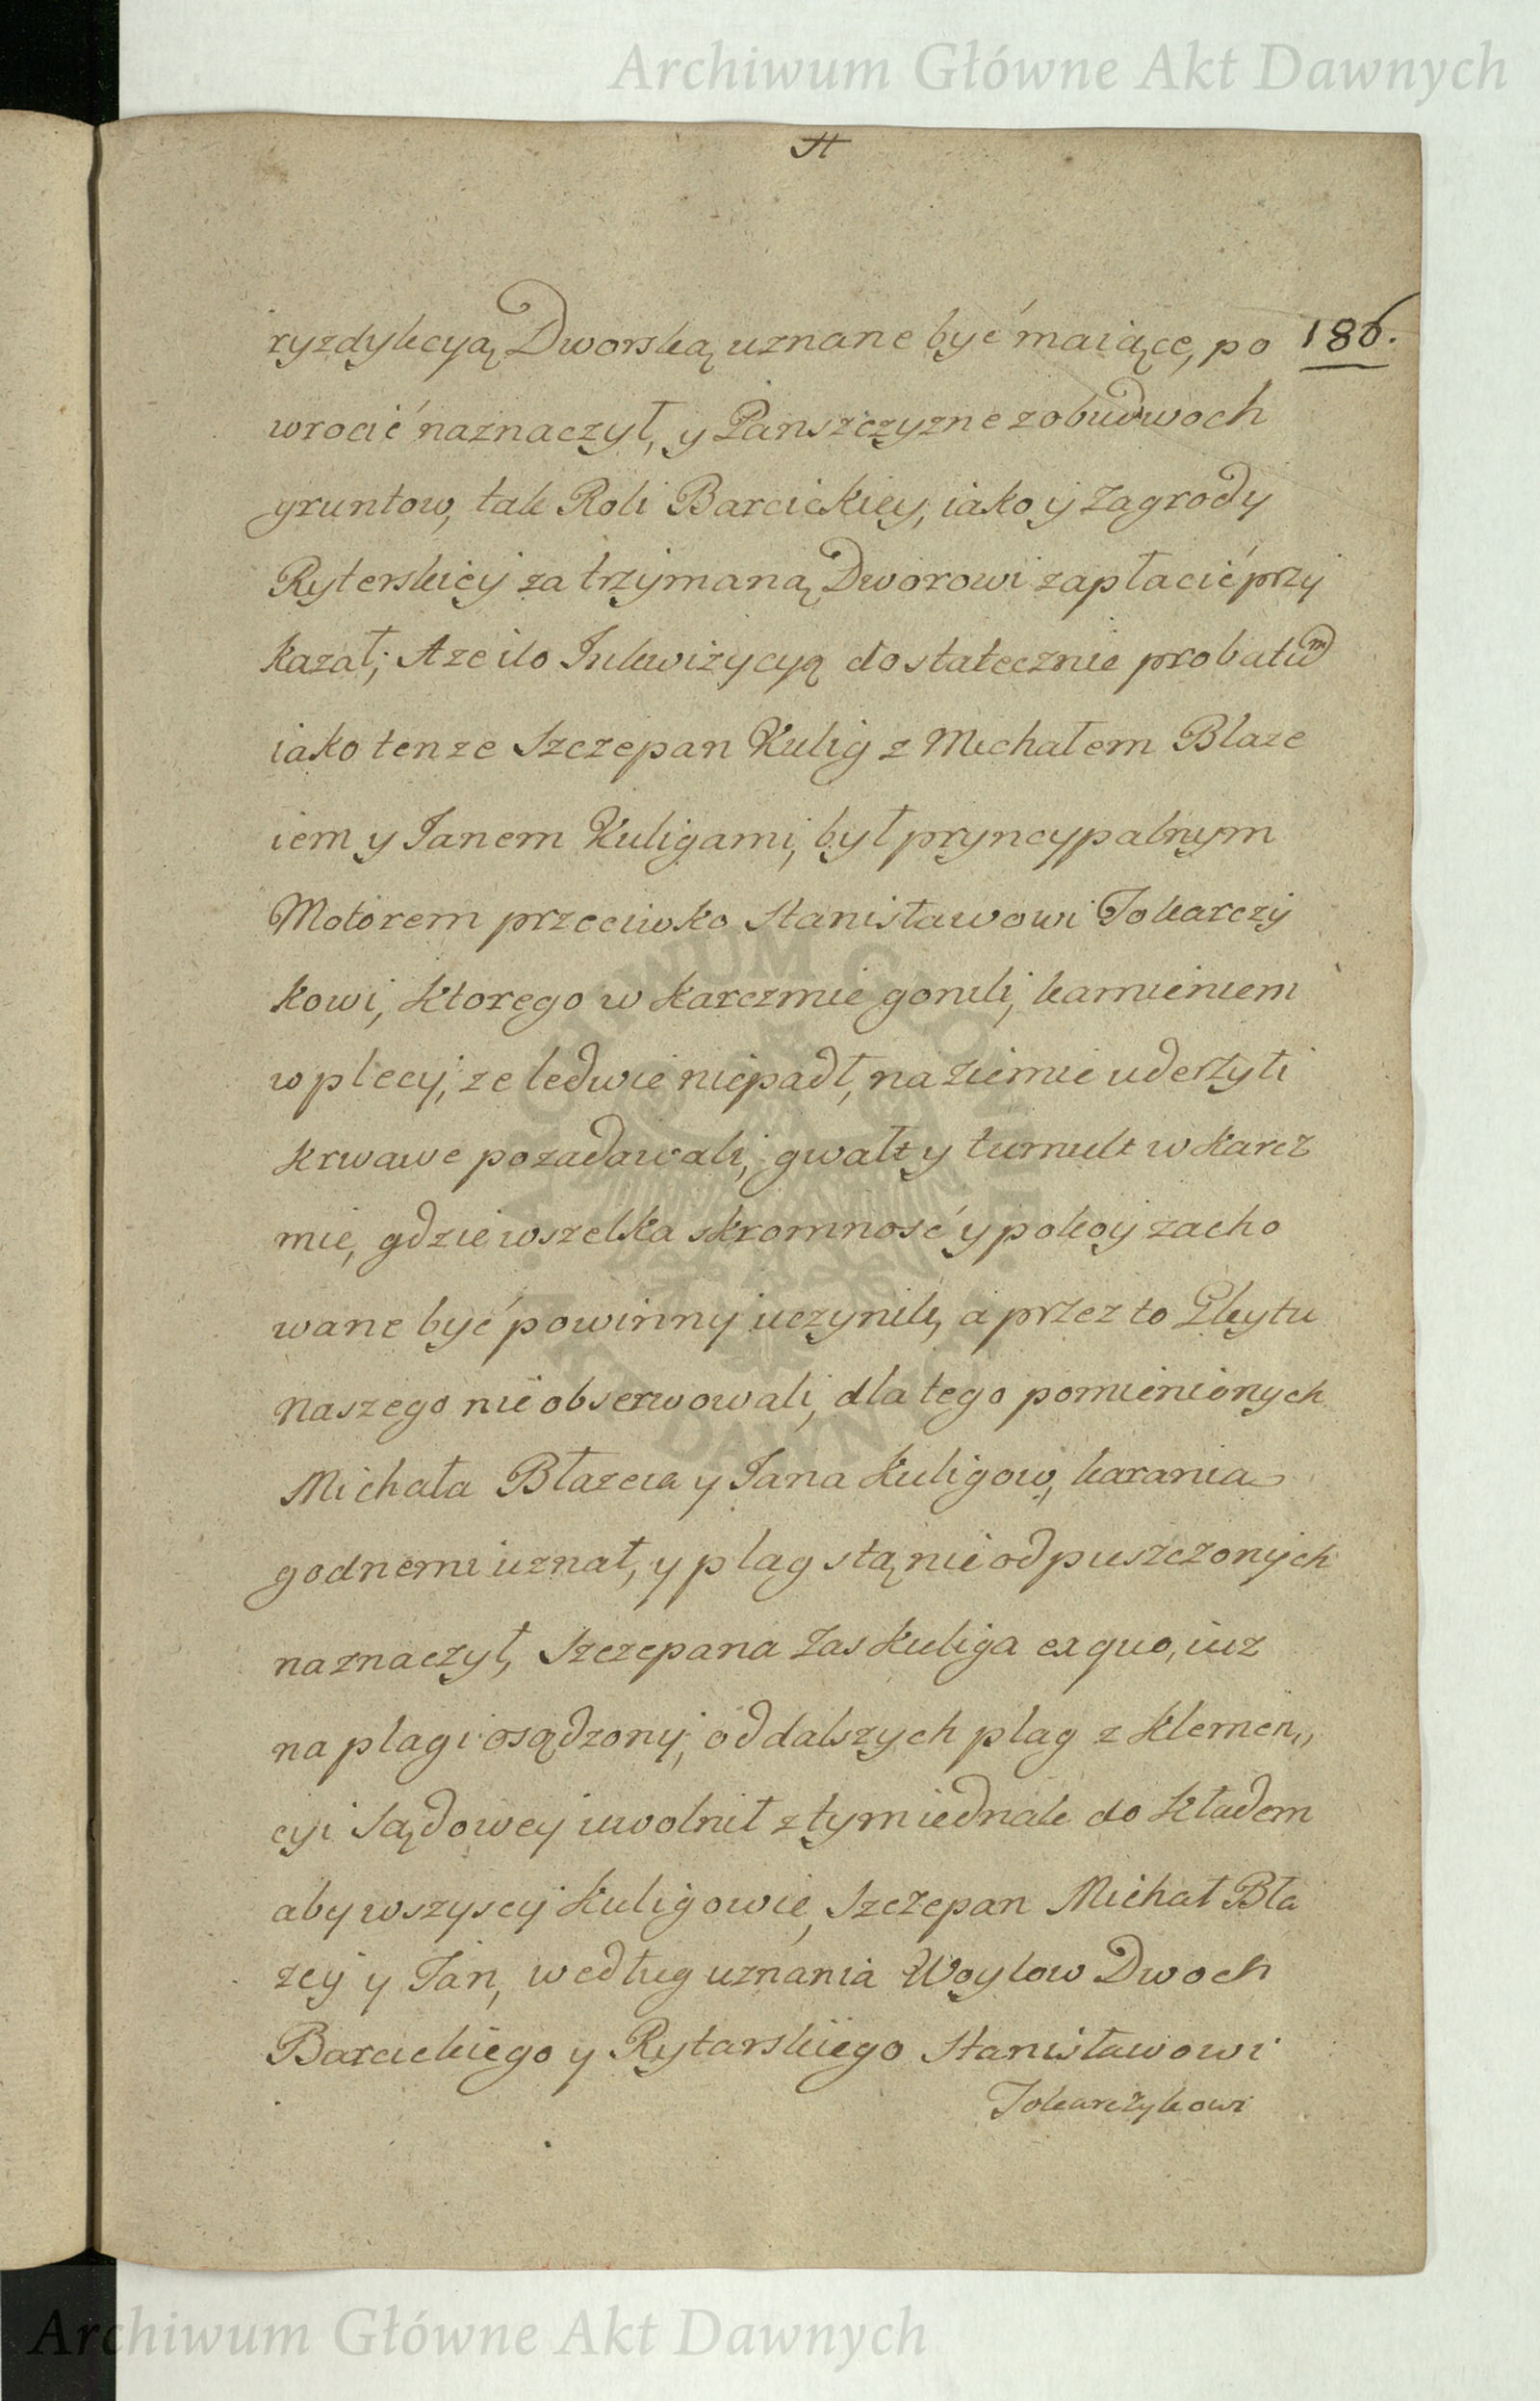 Archiwum Główne Akt Dawnych
186.
ryzdykcyą Dworską uznane być maiące, po
wrocić naznaczył, y Panszczyzne z obudwoch
gruntow, tak Roli Barcickiey, iako y Zagrody
Ryterskiey za trzymaną Dworowi zapłacić przy
kazał; A ze ilo Inkwizycyą dostatecznie probatum
iako tenze Szczepan Kulig z Michałem Blaze
iem y Janem Kuligami, był pryncypalnym
Motorem przeciwko Stanisławowi Tokarczy
kowi, ktorego w karczmie gonili, kamieniem
w plecy, ze ledwie niepadł, na ziemie uderzyli
krwawe pozadawali, gwałt y tumult w karcz
mie, gdzie wszelka skromność y pokoy zacho
wane być powinny uczynili, a przez to Gleytu
naszego nie obserwowali, dla tego pomienionych
Michała Błazeia y Jana Kuligow, karania
godnemi uznał, y plag stą nieodpuszczonych
naznaczył, Szczepana zas Kuliga ex quo, iuz
na plagi osądzony, od dalszych plag z klemen„
cyi Sądowey uwolnił z tym iednak do kładem
aby wszyscy Kuligowie, Szczepan Michał Bła
zey y Jan, według uznania Woytow Dwoch
Barcickiego y Rytarskiego Stanisławowi
Tokarczykowi
ARCHIWUM GŁÓWNE
AKT DAWNYCH
Archiwum Główne Akt Dawnych